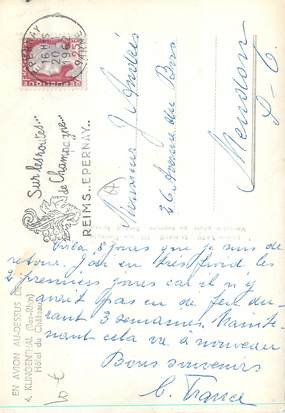 EPERNAY
16H
20
1962
MARNE
0,25
Sur les routes
de Champagne
REIMS.. EPERNAY..
Monsieur J
26 Avenue du Bois
Meudon
S-O.
EN AVION AU-DESSUS DE
4. KLINGENTHAL (Bas-Rhin)
Hôtel du Château
Voila 8 jours que je suis de
retour. J'ai eu très froid les
2 premiers jours car il n'y
avait pas eu de feu du-
rant 3 semaines. Mainte-
nant cela va à nouveau
Bons souvenirs
C. France
10 €